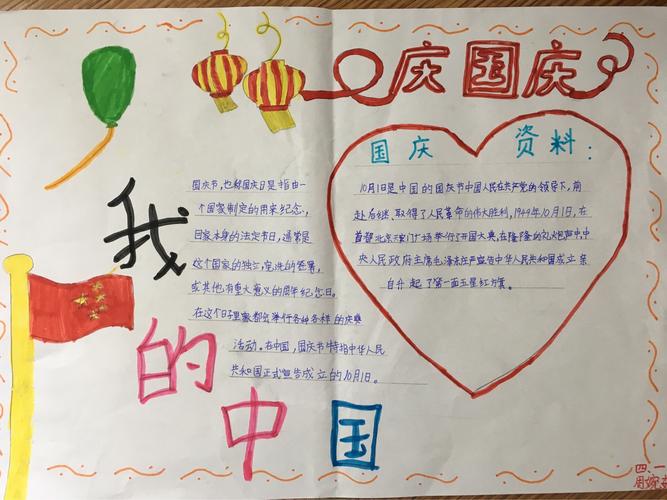 庆国庆
国庆 资料：
10月1日是中国的国庆节中国人民在共产党的领导下，前
赴后继、取得了人民革命的伟大胜利，1949年10月1日，在
首都北京天安门广场举行了开国大典，在隆隆的礼炮声中，中
央人民政府主席毛泽东庄严宣告中华人民共和国成立亲
自升起了第一面五星红旗。
国庆节，也称国庆日是指由一
个国家制定的用来纪念，
国家本身的法定节日，通常是
这个国家的独立，宪法的签署，
或其他有重大意义的周年纪念日。
在这个日子里家都会举行各种各样的庆典
活动。在中国，国庆节特指中华人民
共和国正式宣告成立的10月1日。
我
的
中
国
四、一